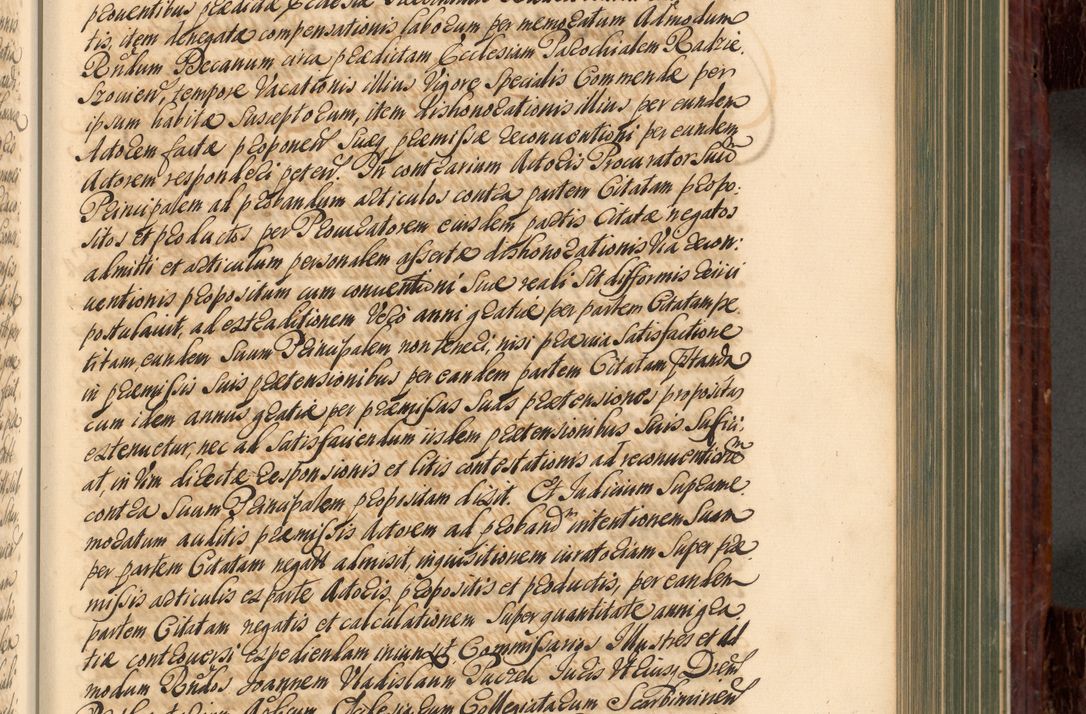 proventibus praedictae Ecclesiae
tis, item denegatae compensationis laborum per memoratum Admodum
Rndum Decanum circa praedictam Ecclesiam Parochialem Radzie:
szovien, tempore Vacationis illius Vigore Specialis Commendae per
ipsum habitae Susceptorum, item dishonorationis illius per eundem
Actorem factae proponen Suaeq praemissae reconventioni per eundem
Actorem responderi peten. In contrarium Actoris Procurator Suum
Principalem ad probandum articulos contra partem Citatam propo:
sitos et productos per Procuratorem eiusdem partis Citatae negatos
admitti et articulum personalem assertae dishonorationis Via recon:
ventionis propositum cum conventioni Suae reali Sit difformis reiici
postulavit, ad extraditionem Vero anni gratiae per partem Citatam pe
titam, eundem Suum Principalem non teneri, nisi praevia Satisfactione
in praemissis Suis praetensionibus per eandem partem Citatam praestanda
cum idem annus gratiae per praemissas Suas praetensiones propositas
extenuetur, nec ad Satisfaciendum iisdem praetensionibus Suis Suffici:
at, in Vim directae responsionis et litis contestationis ad reconventionem
contra Suum Principalem propositam dixit. Et Judicium Supreme
moratum auditis praemissis Actorem ad proband intentionem Suam
per partem Citatam negat admisit, inquisitionem iuratoriam Super prae
missis articulis ex parte Actoris, propositis et productis, per eandem
partem Citatam negatis et calculationem Super quantitate anni gra
tiae controversi expediendam iniunxit, Commissarios Illustres et Ad
modum Rndos Joannem Vladislaum Juris Utriusq Dren
Ecclesiarum Collegiatarum Scarbimirien